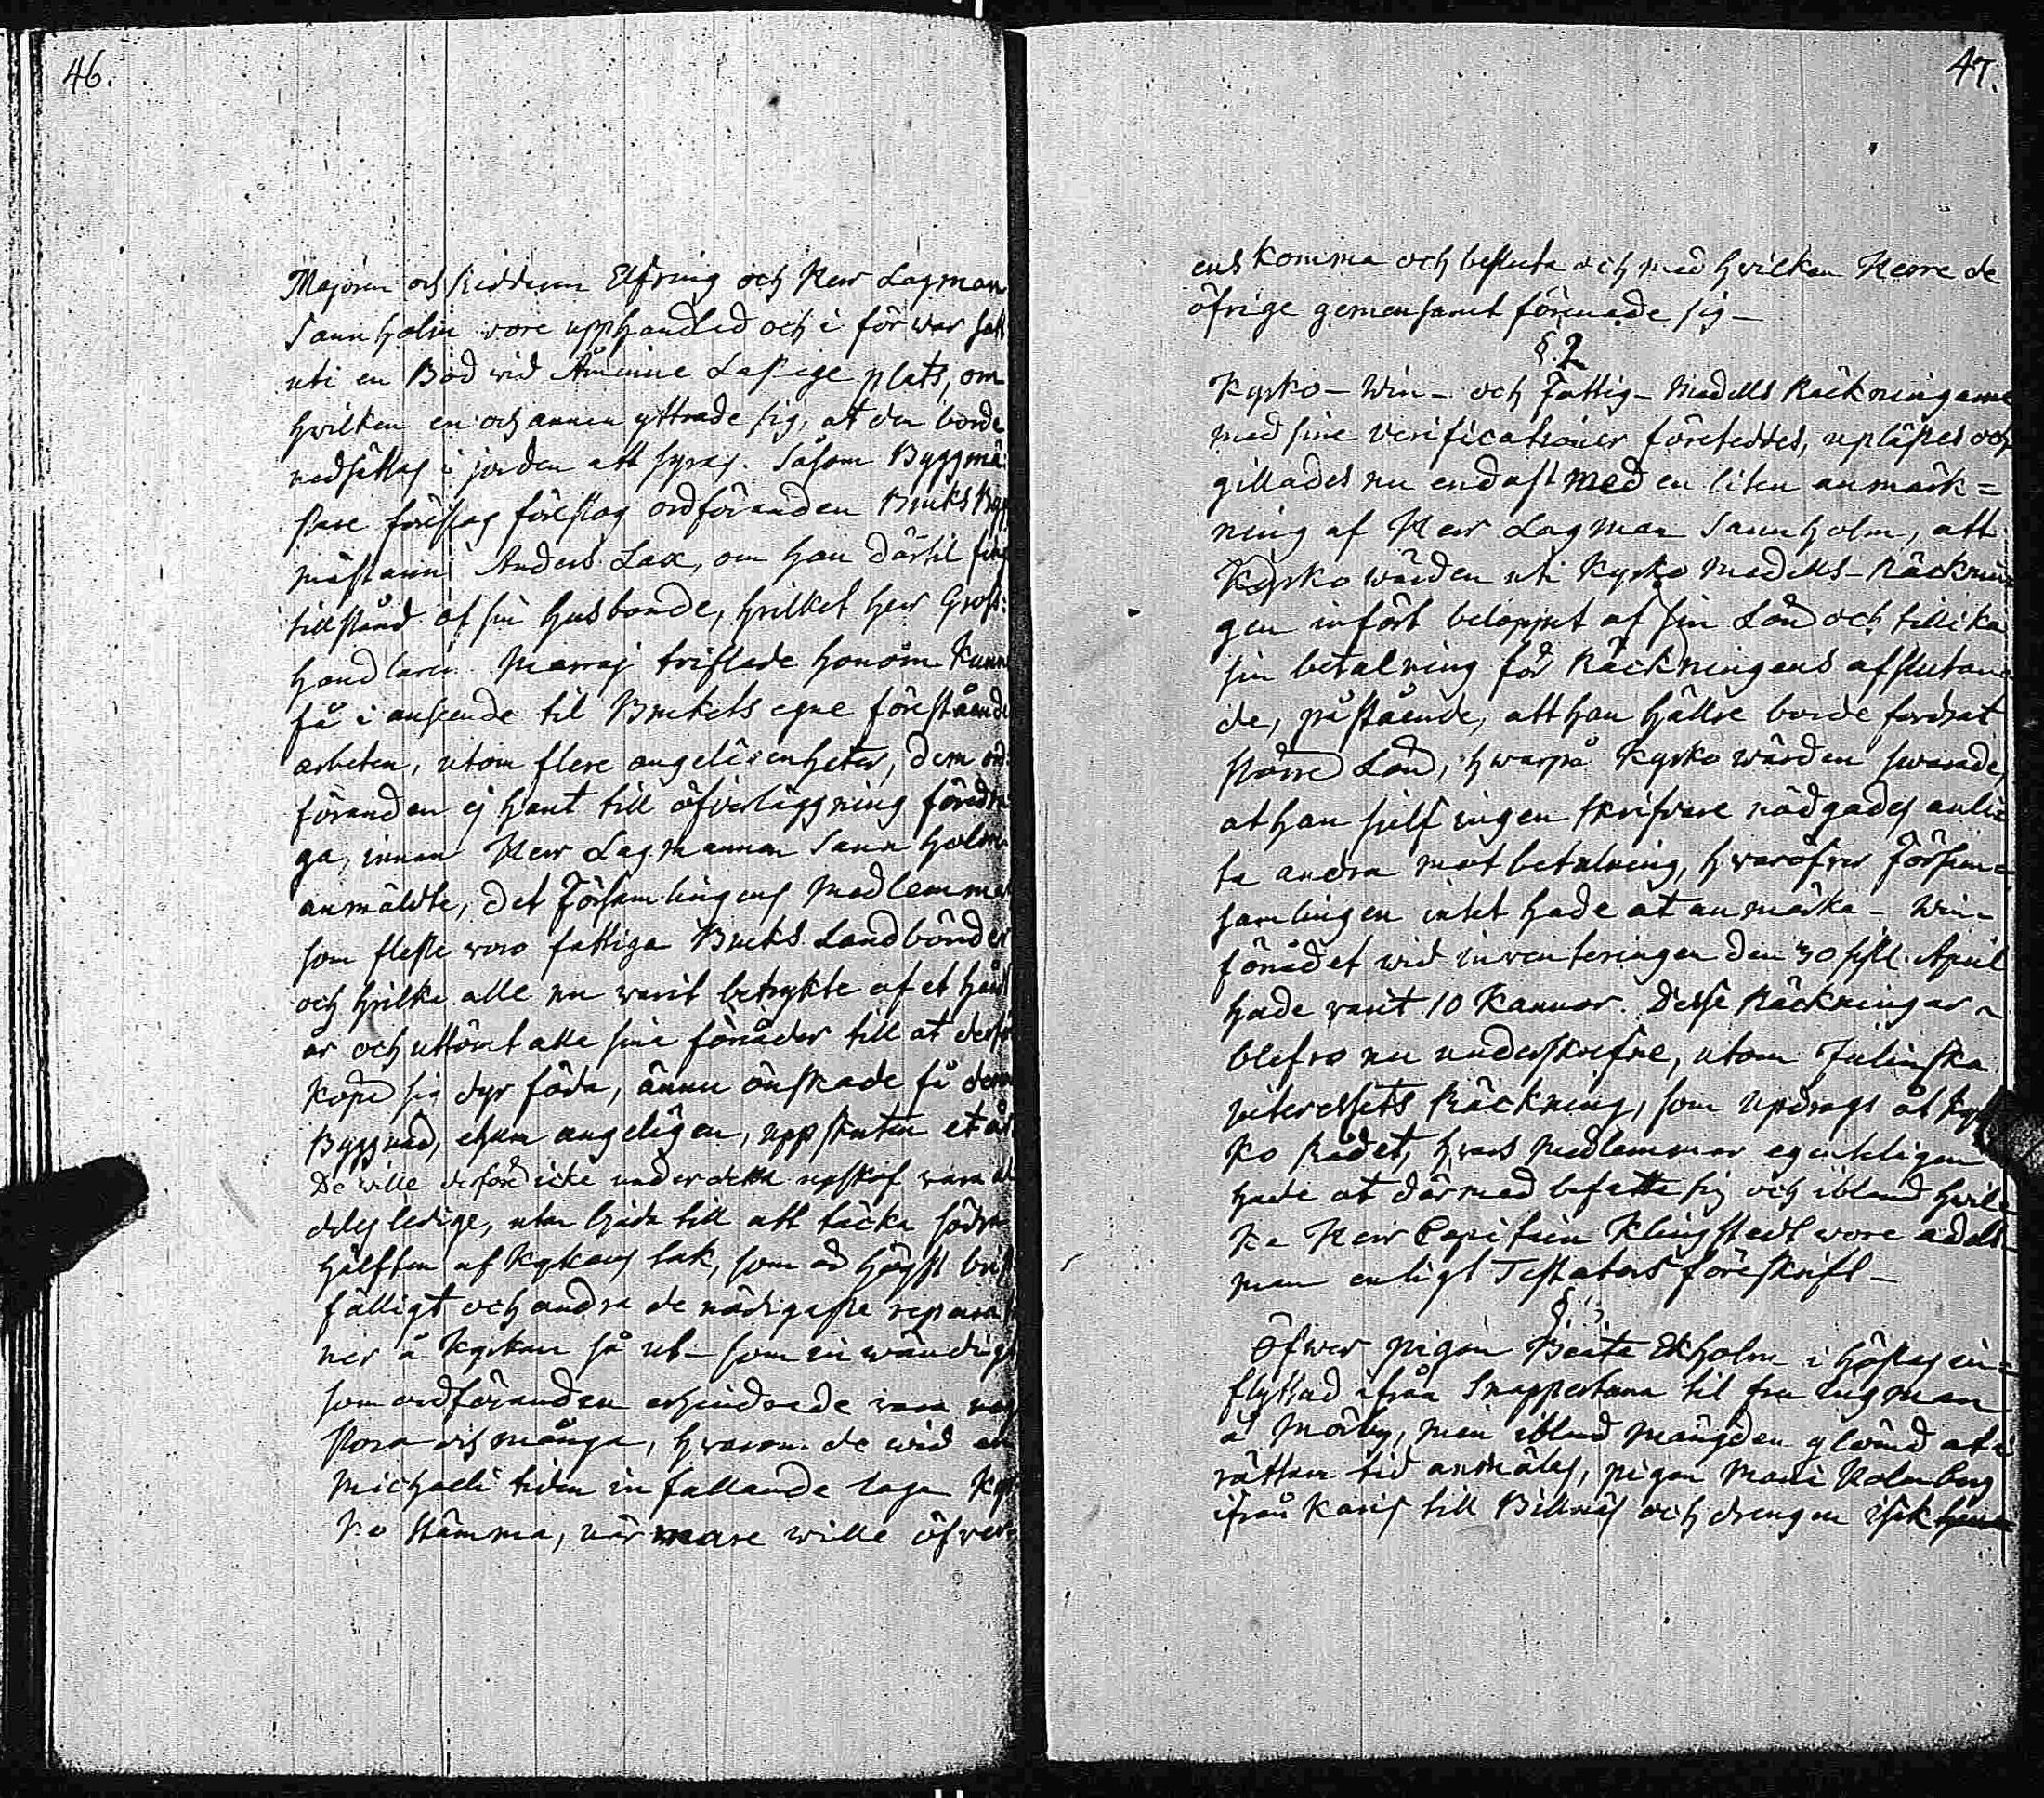 46.
Majoren och Riddaren Elfving och Herr Lagman
Sannholm vore upphandlad och i förvar satt
uti en Bod vid Åminne Lastage plats, om
hvilken en och annan yttrade sig, at den borde
nedsättas i jorden att syras. Såsom Byggmä
stare föreslog ordföranden Bruks Byg
mästaren Anders Lax, om han därtil fick
tillstånd af sin husbonde, hvilket Herr Gross:
handlaren triflade honom kunna
få i anseende til Brukets egne förestående
arbeten, utom flere angelägenheter, dem ord
föranden ej hant till öfverläggning föredra
ga, innan Herr Lagmannen Sannholm
anmälte, det Församlingens Medlemmar
som fleste voro fattiga Bruks Landbönder
och hvilka alla nu varit betrykte af et hårdt
år och uttömt alla sina förråder till at
köpa sig dyr föda, ännu önskade få denna
Byggnad, ehuru angelägen, uppskuten et år.
De wille derföre icke under detta upskof vara al
deles ledige, utan bjuda till att täcka södra
hälften af Kyrkans tak, som är högst brist
fälligt och andra de nödigaste reparatio
ner å Kyrkan så ut- som invändigt
som ordföranden erhindrade vara nog
stora och många, hvarom de wid en
Michaeli tiden infallande laga Kyr
ko stämma, närmare wille öfver
47.
ens komma och besluta och med hvilken Herre de
öfrige gemensamt förenade sig —
§. 2
Kyrko- Win- och Fattig- Medels Räkningarne
med sine Verificationer företeddes, uplästes och
gillades nu endast med en liten anmärk=
ning af Herr Lagman Sannholm, att
Kyrko wärden uti Kyrko Medels- Räknin
gen infört beloppet af sin Lön och tillika
sin betalning för Räkningens afslutan
de, påstående, att han hällre borde fordrat
större Lön, hwarpå Kyrko wärden svarade,
at han sjelf ingen skrifvare nödgades anli
ta andra mot betalning, hvaröfver Försam=
samlingen intet hade at anmärka — Win-
förrådet wid inventeringen den 30 sistl. April
hade varit 10 Kannor. Desse Räkningar
blefvo nu underskrefne, utom Julinska
interessets Räkning, som updrogs åt Kyr
ko Rådet, hvars medlemmar egenteligen
hade at därmed befatta sig och ibland hvil=
ka Herr Capitain Klingstedt vore adels
man enligt Testators föreskrift —
§ 3
Öfwer pigan Beata Ekholm i höstas in=
flyttad ifrån Snappertuna til fru Lagman
å Mörby, men ibland mängden glömd at i
rättan tid anmälas, pigan Maria Holmberg
ifrån Karis till Billnäs och drengen Isak